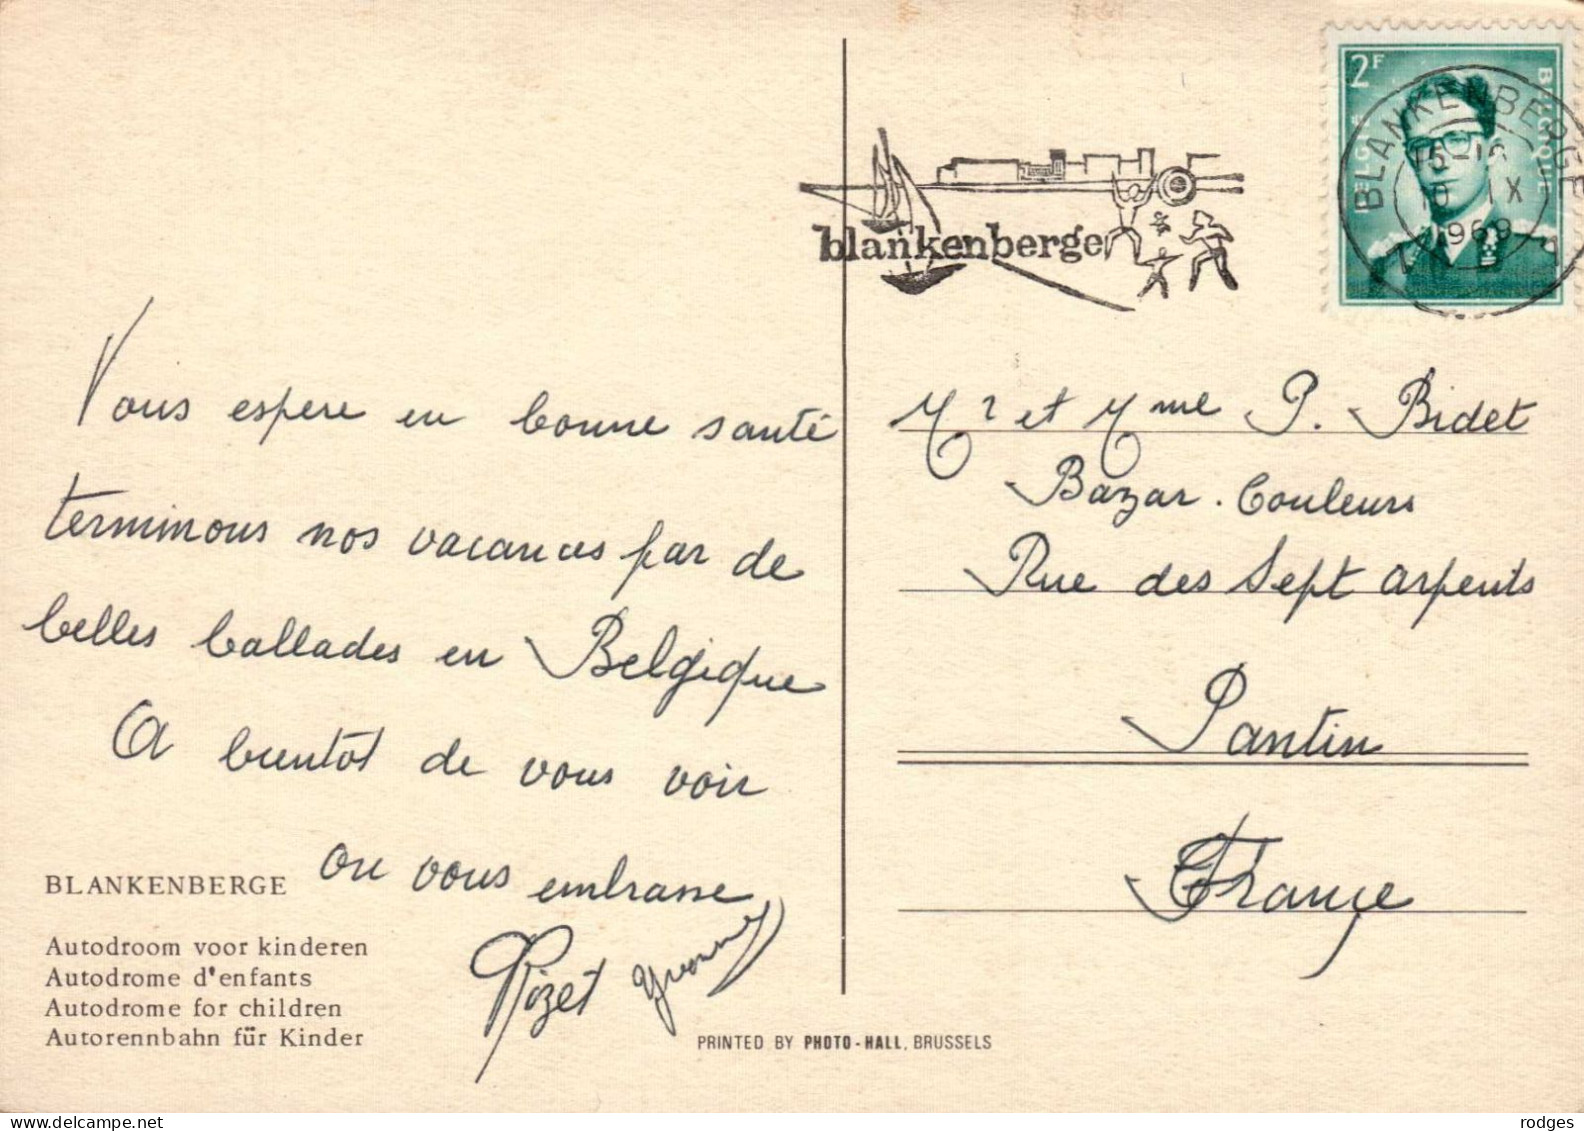 Vous espere en bonne santé
terminons nos vacances par de
belles ballades en Belgique
A bientôt de vous voir
on vous embrasse
Yvonne
BLANKENBERGE
Autodroom voor kinderen
Autodrome d'enfants
Autodrome for children
Autorennbahn für Kinder
PRINTED BY PHOTO-HALL, BRUSSELS
blankenberge
2F
BELGIE BELGIQUE
BLANKENBERGE
IX
1969
Mr et Mme P. Bidet
Bazar. Couleurs
Rue des Sept arpents
Pantin
France
rodges